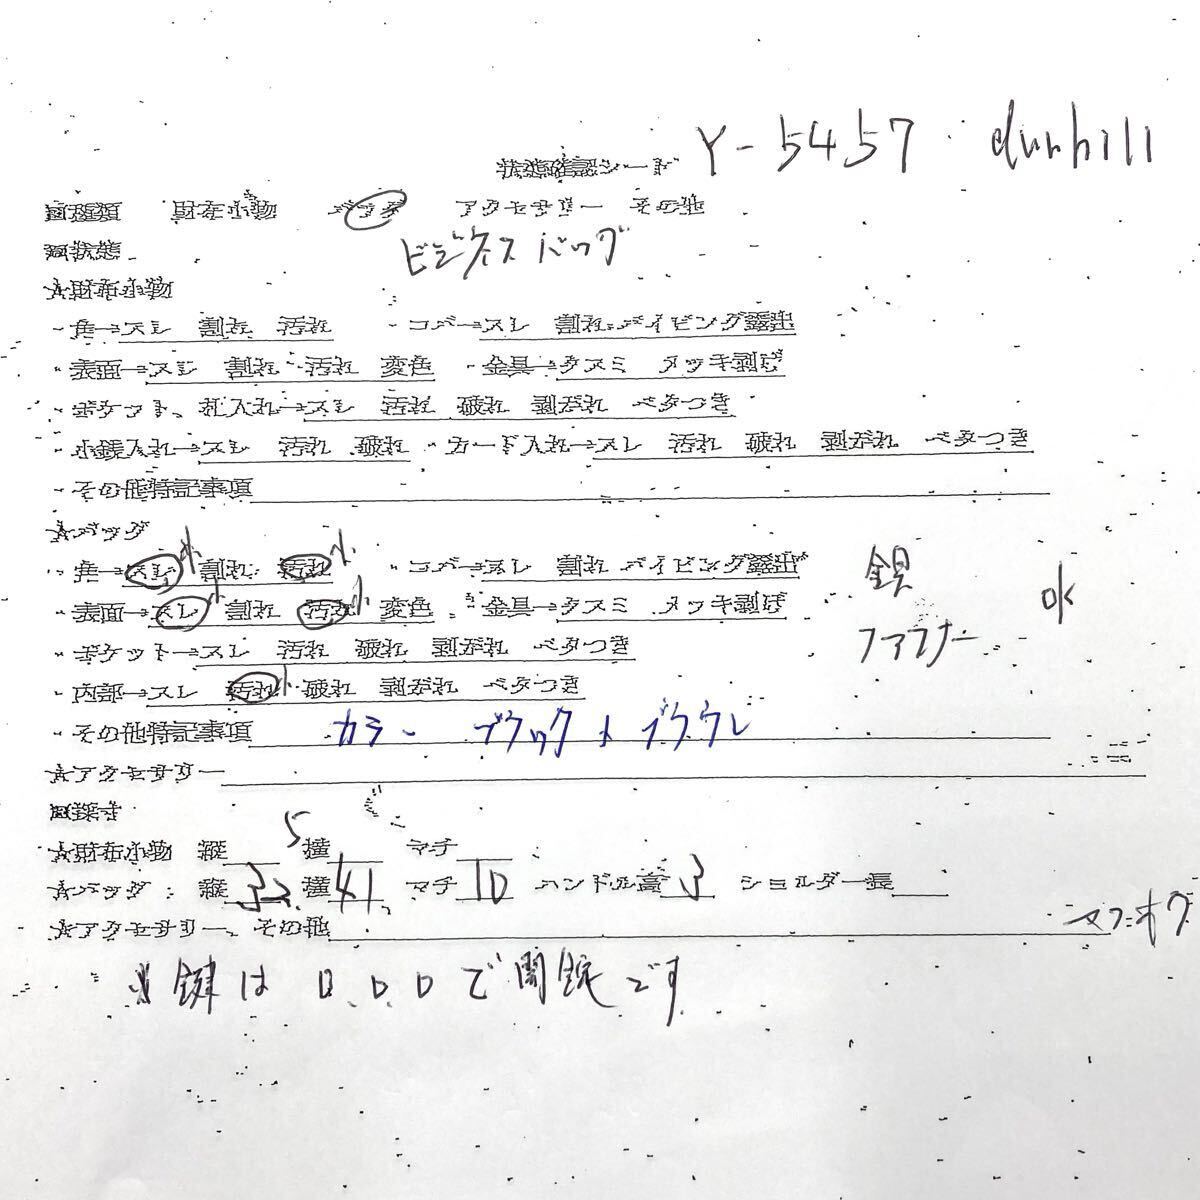 Y-5457 dunhill
状態確認シート
□種類 財布小物 バッグ アクセサリー その他
□状態 ビジネスバッグ
★財布小物
・角→スレ 割れ 汚れ ・コバ→スレ 割れ パイピング露出
・表面→スレ 割れ 汚れ 変色 ・金具→クスミ メッキ剥げ
・ポケット、札入れ→スレ 汚れ 破れ 剥がれ ベタつき
・小銭入れ→スレ 汚れ 破れ ・カード入れ→スレ 汚れ 破れ 剥がれ ベタつき
・その他特記事項
★バッグ
・角→スレ小 割れ 汚れ小 ・コバ→スレ 割れ パイピング露出 錠
・表面→スレ小 割れ 汚れ小 変色 ・金具→クスミ メッキ剥げ ファスナー OK
・ポケット→スレ 汚れ 破れ 剥がれ ベタつき
・内部→スレ 汚れ小 破れ 剥がれ ベタつき
・その他特記事項 カラー ブラック × ブラウン
★アクセサリー
□採寸
★財布小物 縦 横 マチ
★バッグ:縦 32.5 横 41 マチ 10 ハンドル高 3 ショルダー長
★アクセサリー、その他 ヤフオク
※鍵は 0.0.0で開錠です